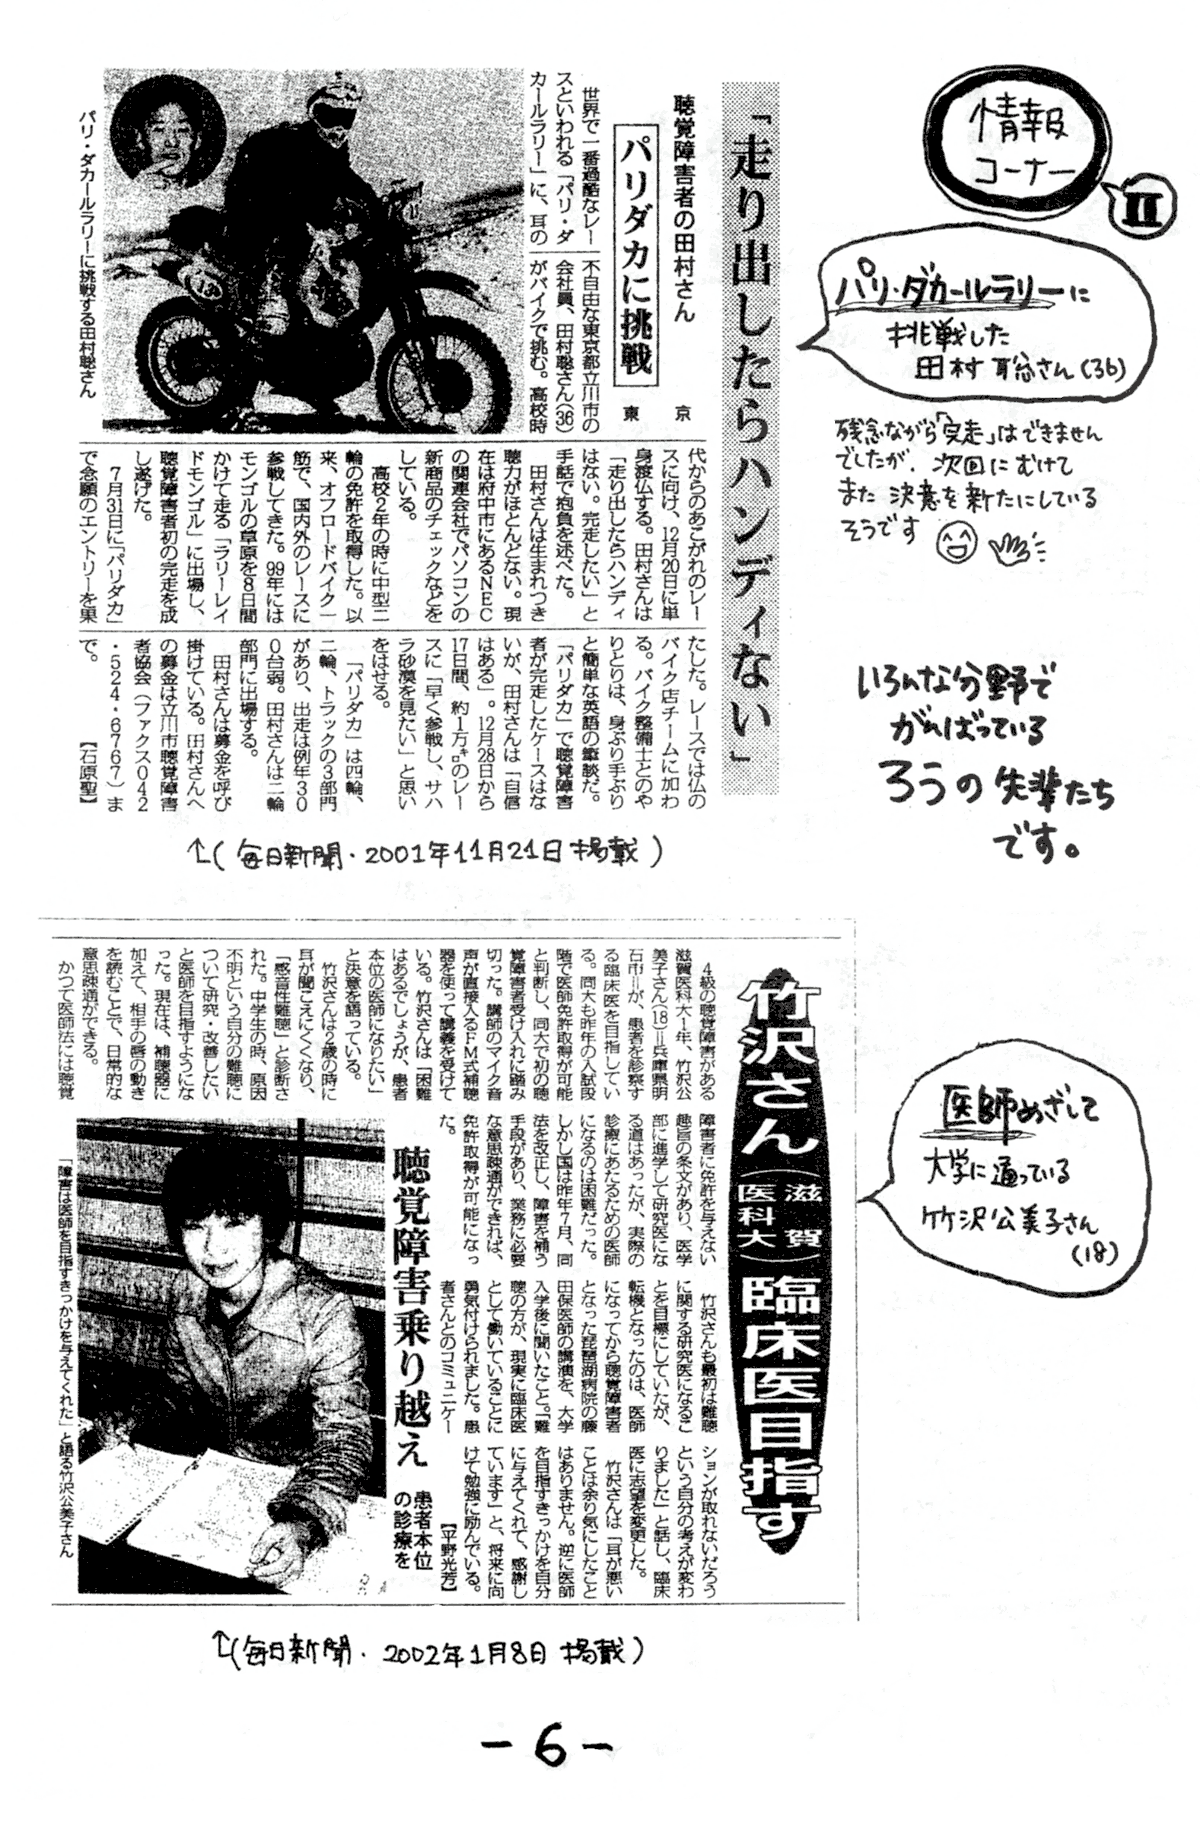 情報
コーナー
II
パリ・ダカールラリーに
挑戦した
田村聡さん(36)
残念ながら「完走」はできません
でしたが、次回にむけて
また決意を新たにしている
そうです
いろんな分野で
がんばっている
ろうの先輩たち
です。
「走り出したらハンディない」
聴覚障害者の田村さん
パリダカに挑戦
東京
世界で一番過酷なレー
スといわれる「パリ・ダ
カールラリー」に、耳の
不自由な東京都立川市の
会社員、田村聡さん(36)
がバイクで挑む。高校時
代からのあこがれのレー
スに向け、12月20日に単
身渡仏する。田村さんは
「走り出したらハンディ
はない。完走したい」と
手話で抱負を述べた。
田村さんは生まれつき
聴力がほとんどない。現
在は府中市にあるNEC
の関連会社でパソコンの
新商品のチェックなどを
している。
高校2年の時に中型二
輪の免許を取得した。以
来、オフロードバイク一
筋で、国内外のレースに
参戦してきた。99年には
モンゴルの草原を8日間
かけて走る「ラリーレイ
ドモンゴル」に出場し、
聴覚障害者初の完走を成
し遂げた。
7月31日に「パリダカ」
で念願のエントリーを果
たした。レースでは仏の
バイク店チームに加わ
る。バイク整備士とのや
りとりは、身ぶり手ぶり
と簡単な英語の筆談だ。
「パリダカ」で聴覚障害
者が完走したケースはな
いが、田村さんは「自信
はある」。12月28日から
17日間、約1万㌔のレー
スに「早く参戦し、サハ
ラ砂漠を見たい」と思い
をはせる。
「パリダカ」は四輪、
二輪、トラックの3部門
があり、出走は例年30
0台弱。田村さんは二輪
部門に出場する。
田村さんは募金を呼び
掛けている。田村さんへ
の募金は立川市聴覚障害
者協会(ファクス042
・524・6767)ま
で。
【石原聖】
パリ・ダカールラリーに挑戦する田村聡さん
↑(毎日新聞・2001年11月21日掲載)
医師めざして
大学に通っている
竹沢公美子さん
(18)
竹沢さん(滋賀医科大)臨床医目指す
聴覚障害乗り越え
患者本位
の診療を
4級の聴覚障害がある
滋賀医科大1年、竹沢公
美子さん(18)=兵庫県明
石市=が、患者を診察す
る臨床医を目指してい
る。同大も昨年の入試段
階で医師免許取得が可能
と判断し、同大で初の聴
覚障害者受け入れに踏み
切った。講師のマイク音
声が直接入るFM式補聴
器を使って講義を受けて
いる。竹沢さんは「困難
はあるでしょうが、患者
本位の医師になりたい」
と決意を語っている。
竹沢さんは2歳の時に
耳が聞こえにくくなり、
「感音性難聴」と診断さ
れた。中学生の時、原因
不明という自分の難聴に
ついて研究・改善したい
と医師を目指すようにな
った。現在は、補聴器に
加えて、相手の唇の動き
を読むことで、日常的な
意思疎通ができる。
かつて医師法には聴覚
障害者に免許を与えない
趣旨の条文があり、医学
部に進学して研究医にな
る道はあったが、実際の
診療にあたるための医師
になるのは困難だった。
しかし国は昨年7月、同
法を改正し、障害を補う
手段があり、業務に必要
な意思疎通ができれば、
免許取得が可能になっ
た。
竹沢さんも最初は難聴
に関する研究医になるこ
とを目標にしていたが、
転機となったのは、医師
になってから聴覚障害者
となった琵琶湖病院の藤
田保医師の講演を、大学
入学後に聞いたこと。「難
聴の方が、現実に臨床医
として働いていることに
勇気付けられました。患
者さんとのコミュニケー
ションが取れないだろう
という自分の考えが変わ
りました」と話し、臨床
医に志望を変更した。
竹沢さんは「耳が悪い
ことは余り気にしたこと
はありません。逆に医師
を目指すきっかけを自分
に与えてくれて、感謝し
ています」と、将来に向
けて勉強に励んでいる。
【平野光芳】
「障害は医師を目指すきっかけを与えてくれた」と語る竹沢公美子さん
↑(毎日新聞・2002年1月8日掲載)
-6-